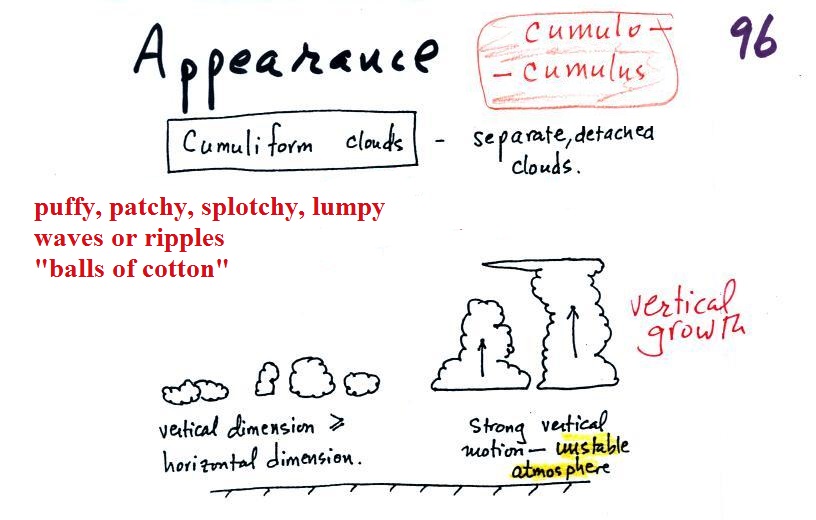 Appearance
cumulo-
- cumulus
96
Cumuliform clouds - separate, detached
clouds.
puffy, patchy, splotchy, lumpy
waves or ripples
"balls of cotton"
vertical
growth
vertical dimension ≥
horizontal dimension.
Strong vertical
motion - unstable
atmosphere